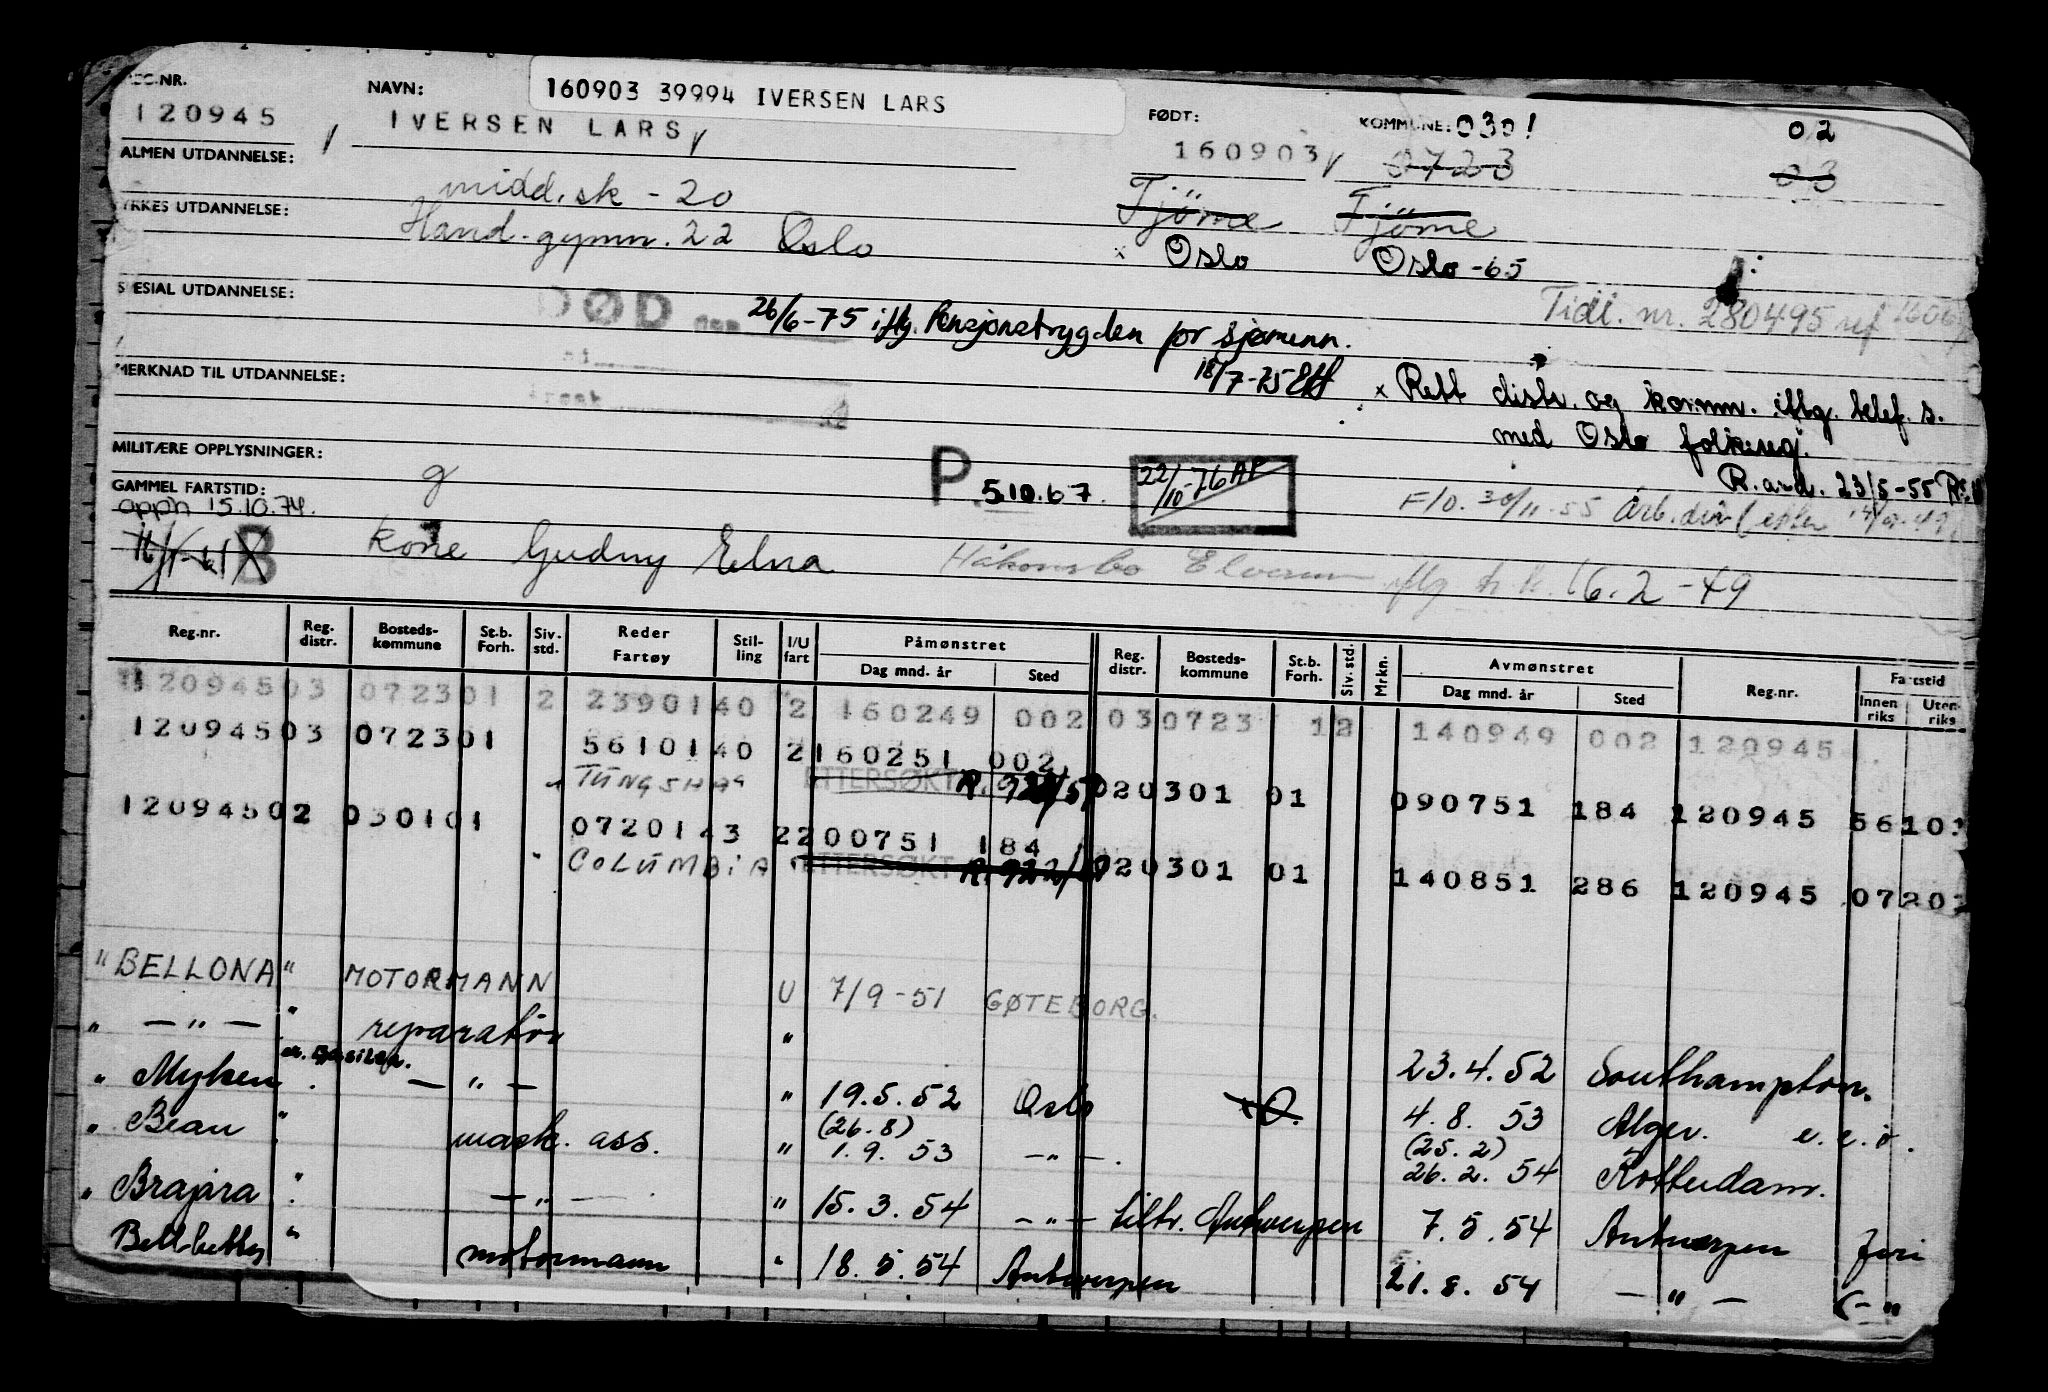 REG.NR. NAVN: 160903 39994 IVERSEN LARS FØDT: KOMMUNE: 0301 02
120945 IVERSEN LARS 160903 0723 03
ALMEN UTDANNELSE: midd.sk - 20 Tjöme Tjöme
YRKES UTDANNELSE: Hand. gymn. 22 Oslo × Oslo Oslo -65
SPESIAL UTDANNELSE: DØD 26/6-75 iflg. Pensjonstrygden for sjømenn. Tidl. nr. 280495
18/7-75
MERKNAD TIL UTDANNELSE: × Rett distr. og komm. iflg. telef. s.
med Oslo folkereg.
MILITÆRE OPPLYSNINGER: g P. 5.10.67. 22/10-76 AP R. avd. 23/5-55
GAMMEL FARTSTID: F/O. 30/11-55 Arb.dir
opph 15.10.74.
B kone Gudny Elna Håkonsbo Elverum iflg 16.2-49
Reg.nr. Reg. distr. Bosteds-kommune St.b. Forh. Siv. std. Reder Fartøy Stil-ling I/U fart Påmønstret Dag mnd. år Sted Reg. distr. Bosteds-kommune St.b. Forh. Siv. std. Mrkn. Avmønstret Dag mnd. år Sted Reg.nr. Fartstid Innen riks Uten riks
120945 03 0723 01 2 2390140 2 160249 002 03 0723 12 140949 002 120945
120945 03 0723 01 5610140 2 160251 002
TUNGSHA ETTERSØKT 02 0301 01 090751 184 120945 56101
120945 02 0301 01 0720143 2 200751 184
COLUMBIA ETTERSØKT R. 922/ 02 0301 01 140851 286 120945 07201
" BELLONA " MOTORMANN U 7/9-51 GØTEBORG.
" — " — " reparatör " 23.4.52 Southampton.
" Myken " — " — " 19.5.52 Oslo 4.8.53 Alger. e.e.o.
" Beau " mask. ass. " (26.8) 1.9.53 — " — . (25.2) 26.2.54 Rotterdam.
" Brajara " — " — " 15.3.54 — " — tiltr. Antwerpen 7.5.54 Antwerpen Feri
Bett " motormann " 18.5.54 Antwerpen 21.8.54 — " — ( — "